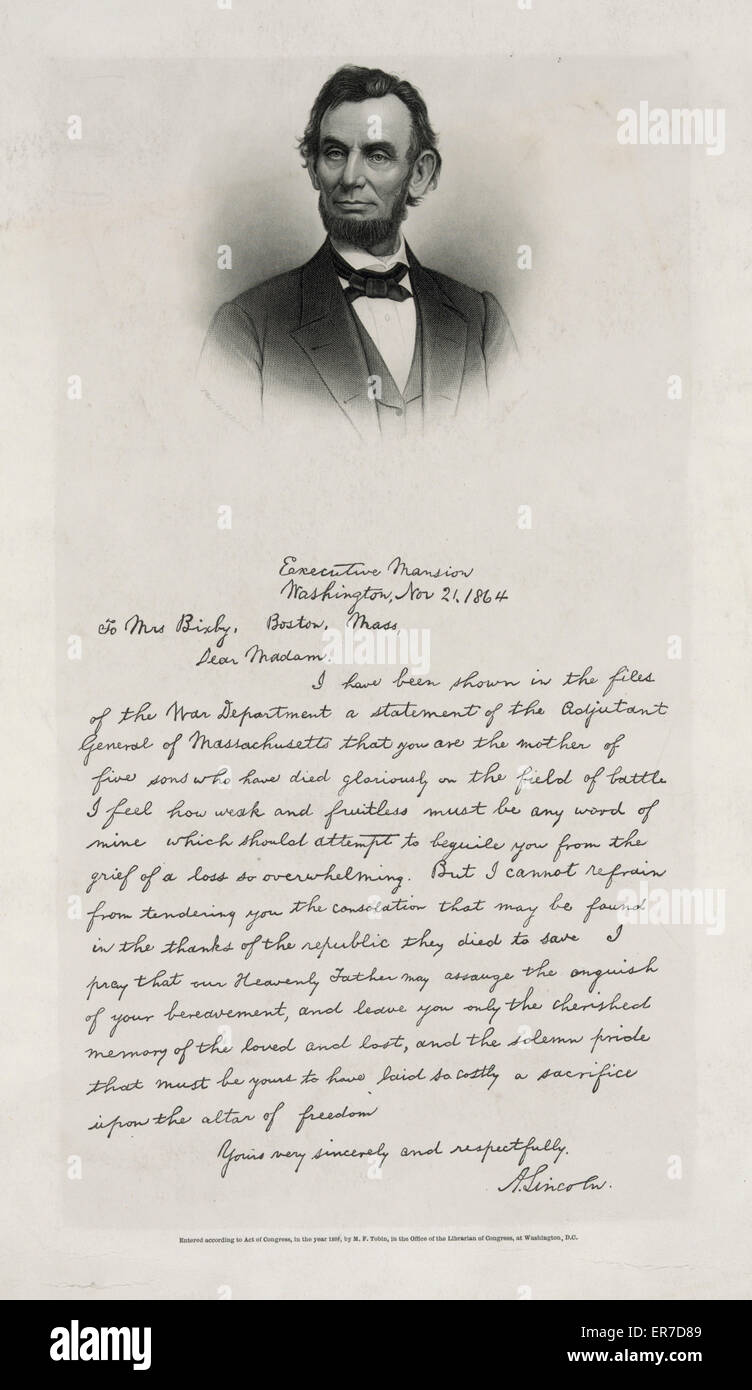 Executive Mansion
Washington, Nov 21, 1864
To Mrs Bixby, Boston, Mass,
Dear Madam.
I have been shown in the files
of the War Department a statement of the Adjutant
General of Massachusetts that you are the mother of
five sons who have died gloriously on the field of battle
I feel how weak and fruitless must be any word of
mine which should attempt to beguile you from the
grief of a loss so overwhelming. But I cannot refrain
from tendering you the consolation that may be found
in the thanks of the republic they died to save I
pray that our Heavenly Father may assauge the anguish
of your bereavement, and leave you only the cherished
memory of the loved and lost, and the solemn pride
that must be yours to have laid so costly a sacrifice
upon the altar of freedom
Yours very sincerely and respectfully.
A. Lincoln.
Entered according to Act of Congress, in the year by M. F. Tobin, in the Office of the Librarian of Congress, at Washington, D.C.
alamy
alamy
alamy
a
a
a
a
a
a
alamy
Image ID: ER7D89
www.alamy.com